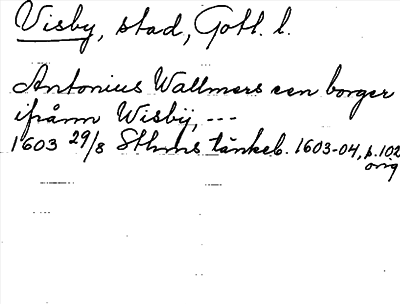 Visby, stad, Gotl. l.
Antonius Wallmers een borger
ifrånn Wisbÿ, ---
1603 29/8 Sthms tänkeb. 1603-04, p. 102
orig